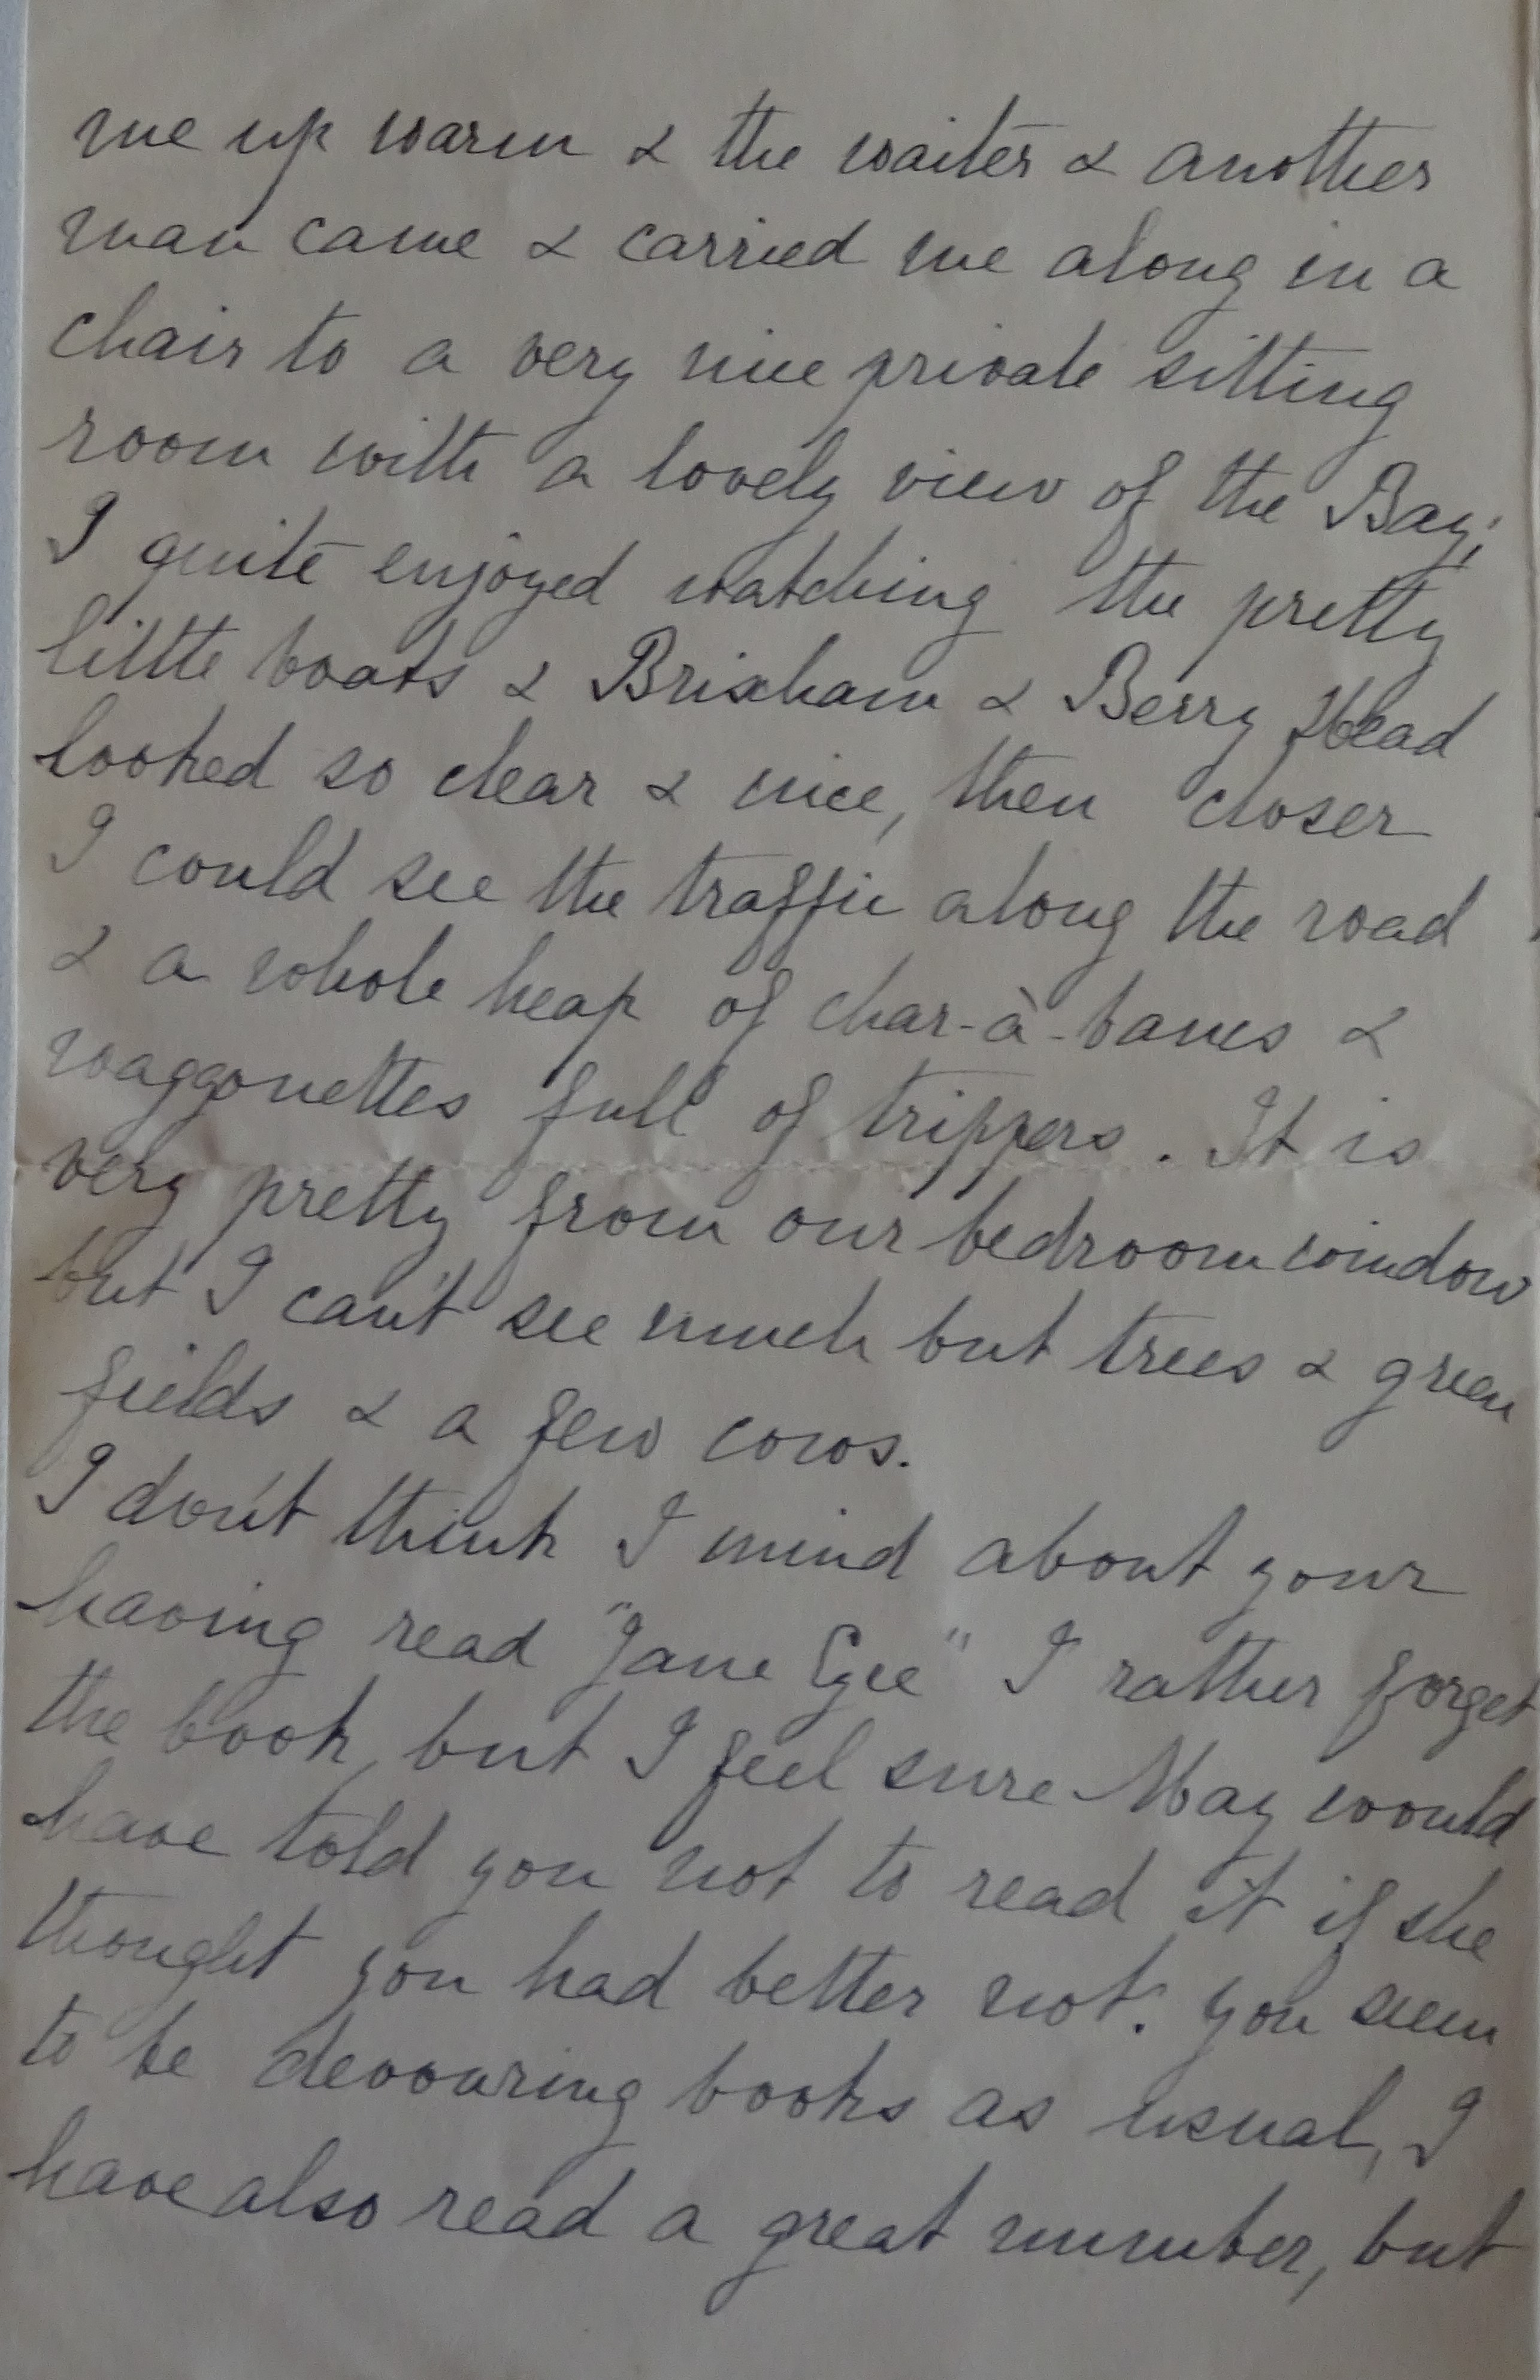 me up warm & the waiter & another
man came & carried me along in a
chair to a very nice private sitting
room with a lovely view of the Bay;
I quite enjoyed watching the pretty
little boats & Brixham & Berry Head
looked so clear & nice, then closer
I could see the traffic along the road
& a whole heap of char-à-bancs &
waggonettes full of trippers. It is
very pretty from our bedroom window
but I can't see much but trees & green
fields & a few cows.
I don't think I mind about your
having read "Jane Eyre" I rather forget
the book, but I feel sure May would
have told you not to read it if she
thought you had better not. you seem
to be devouring books as usual, I
have also read a great number, but